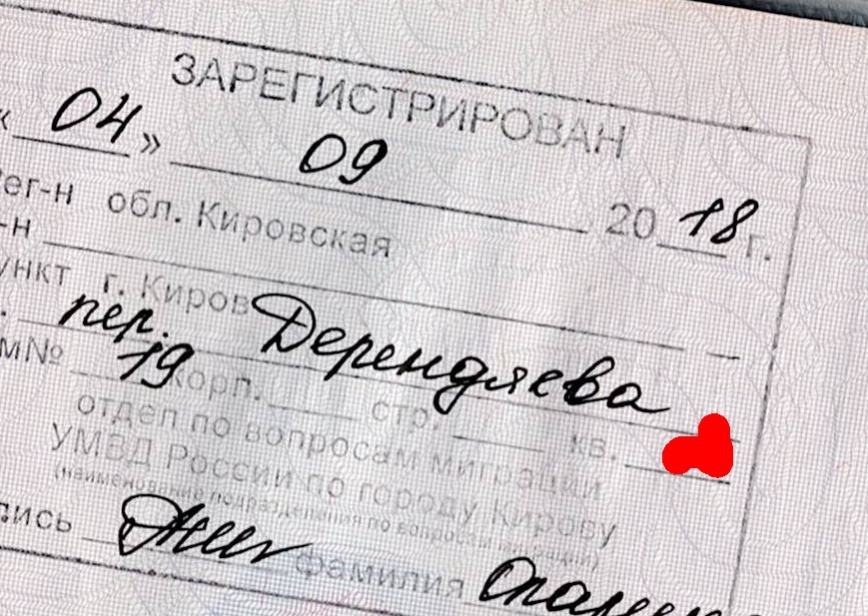 ЗАРЕГИСТРИРОВАН
« 04 » 09 20 18 г.
Рег-н обл. Кировская
-н
ункт г. Киров
пер. Дерендяева
м№ 19 корп. стр. кв.
отдел по вопросам миграции
УМВД России по городу Кирову
(наименование подразделения по вопросам миграции)
пись фамилия